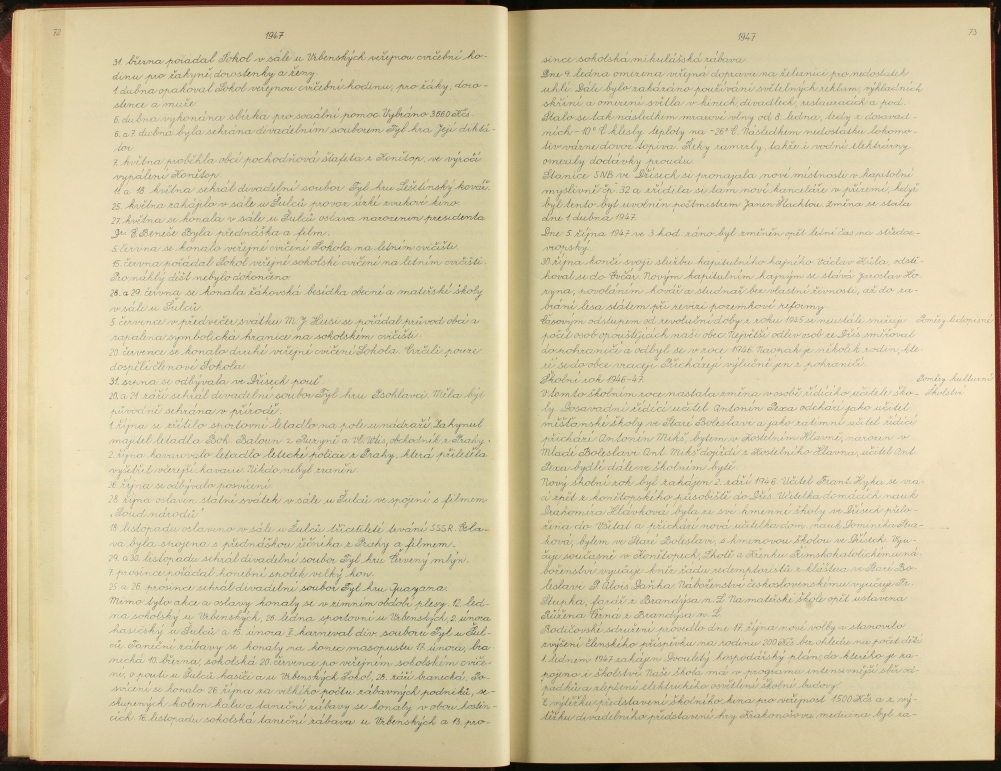 72
1947
31. března pořádal Sokol v sále u Vrbenských veřejnou cvičební ho-
dinu pro žákyně, dorostenky a ženy.
1. dubna opakoval Sokol veřejnou cvičební hodinu, pro žáky, doro-
stence a muže.
6. dubna vykonána sbírka pro sociální pomoc. Vybráno 3560 Kčs.
6. a 7. dubna byla sehrána divadelním souborem Tyl hra Její diktá-
tor.
7. května proběhla obcí pochodňová štafeta z Konětop, ve výročí
vypálení Konětop.
17. a 18. května sehrál divadelní soubor Tyl hru Lešetínský kovář.
25. května zahájilo v sále u Šulců provoz úzké zvukové kino.
27. května se konala v sále u Šulců oslava narozenin presidenta
Dr. E. Beneše. Byla přednáška a film.
5. června se konalo veřejné cvičení Sokola na letním cvičišti.
15. června pořádal Sokol veřejné sokolské cvičení na letním cvičišti.
Pro náhlý déšť nebylo dokončeno.
28. a 29. června se konala žákovská besídka obecné a mateřské školy
v sále u Šulců.
5. července v předvečer svátku M. J. Husi se pořádal průvod obcí a
zapálena symbolická hranice na sokolském cvičišti.
20. července se konalo druhé veřejné cvičení Sokola. Cvičili pouze
dospělí členové Sokola.
31. srpna se odbývala ve Dřísech pouť.
20. a 21. září sehrál divadelní soubor Tyl hru Psohlavci. Měla být
původně sehrána v přírodě.
1. října se zřítilo sportovní letadlo na pole u nádraží. Zahynul
majitel letadla Boh. Baloun z Ruzyně a Vl. obchodník z Prahy.
2. října havarovalo letadlo letecké policie z Prahy, která přiletěla
vyšetřit včerejší havarii. Nikdo nebyl zraněn.
26. října se odbývalo posvícení.
28. října oslaven státní svátek v sále u Šulců ve spojení s filmem
„Soud národů".
18. listopadu oslaveno v sále u Šulců třicetileté trvání SSSR. Osla-
va byla spojena s přednáškou řečníka z Prahy a filmem.
29. a 30. listopadu sehrál divadelní soubor Tyl hru Ztracený mlýn.
7. prosince pořádal honební spolek velký hon.
25. a 26. prosince sehrál divadelní soubor Tyl hru Guayana.
Mimo tyto akce a oslavy konaly se v zimním období plesy. 12. led-
na sokolský u Vrbenských, 26. ledna sportovní u Vrbenských, 2. února
hasičský u Šulců a 15. února 7. karneval div. souboru Tyl u Šul-
ců. Taneční zábavy se konaly na konec masopustu 17. února, bra-
necká 10. března, sokolská 20. července po veřejném sokolském cviče-
ní, o pouti u Šulců hasiči a u Vrbenských Sokol, 28. září branecká. Po-
svícení se konalo 26. října za velkého počtu zábavných podniků, se-
skupených kolem kalu a taneční zábavy se konaly v obou hostin-
cích. 16. listopadu sokolská taneční zábava u Vrbenských a 13. pro-
73
1947
since sokolská mikulášská zábava.
Dne 9. ledna omezena veřejná doprava na železnici pro nedostatek
uhlí. Dále bylo zakázáno používání světelných reklam, výkladních
skříní a omezení světla v kinech, divadlech, restauracích a pod.
Stalo se tak následkem mrazové vlny od 8. ledna, tedy z dosavad-
ních -10° C klesly teploty na -26° C. Následkem nedostatku lokomo-
tiv vázne dovoz topiva. Řeky zamrzly, takže i vodní elektrárny
omezily dodávky proudu.
Stanice SNB ve Dřísech si pronajala nové místnosti v kapitolní
myslivně čp. 32 a zřídila si tam nové kanceláře v přízemí, když
byt tento byl uvolněn poštmistrem Janem Plachtou. Změna se stala
dne 1. dubna 1947.
Dne 5. října 1947 ve 3 hod. ráno byl změněn opět letní čas na středoe-
vropský.
31. října končí svoji službu kapitulního hajného Václav Hůla, odstě-
hoval se do Ovčár. Novým kapitulním hajným se stává Jaroslav Ho-
zyna, povoláním kovář a studnař bez vlastní živnosti, až do za-
brání lesa státem při revisi pozemkové reformy.
Časovým odstupem od revoluční doby z roku 1945 se neustále snižuje
Poměry lidopisné
počet osob opouštějících naši obec. Největší odliv osob ze Dřís směřoval
do pohraničí a odbyl se v roce 1946. Naopak je několik rodin, kte-
ré se do obce vracejí. Přicházejí výlučně jen z pohraničí.
Školní rok 1946-47.
Poměry kulturní
V tomto školním roce nastala změna v osobě řídícího učitele ško-
Školství
ly. Dosavadní řídící učitel Antonín Pexa odchází jako učitel
měšťanské školy ve Staré Boleslavi a jako zatímní učitel řídící
přichází Antonín Mikš, bytem v Kostelním Hlavně, narozen v
Mladé Boleslavi. Ant. Mikš dojíždí z Kostelního Hlavna, učitel Ant.
Pexa bydlí dále ve školním bytě.
Nový školní rok byl zahájen 2. září 1946. Učitel Frant. Hyka se vra-
cí zpět z konětopského působiště do Dřís. Učitelka domácích nauk
Drahomíra Hlávková byla ze své kmenové školy ve Dřísech přelo-
žena do Všetat a přichází nová učitelka dom. nauk Dominika Stra-
ková, bytem ve Staré Boleslavi, s kmenovou školou ve Dřísech. Vyu-
čuje současně v Konětopech, Lhotě a Křenku. Římskokatolickému ná-
boženství vyučuje kněz řádu redemptoristů z kláštera ve Staré Bo-
leslavi P. Alois Daňha. Náboženství československému vyučuje Fr.
Stupka, farář z Brandýsa n. L. Na mateřské škole opět ustavena
Růžena Černá z Brandýsa n. L.
Rodičovské sdružení provedlo dne 17. října nové volby a stanovilo
zvýšení členského příspěvku na rodinu 200 Kčs bez ohledu na počet dětí.
1. lednem 1947 zahájen Dvouletý hospodářský plán, do kterého je za-
pojeno i školství. Naše škola má v programu intensivnější sběr od-
padků a zlepšení elektrického osvětlení školní budovy.
Z výtěžku představení školního kina pro veřejnost 1500 Kčs a z vý-
těžku divadelního představení hry Krakonošova medicina byl za-